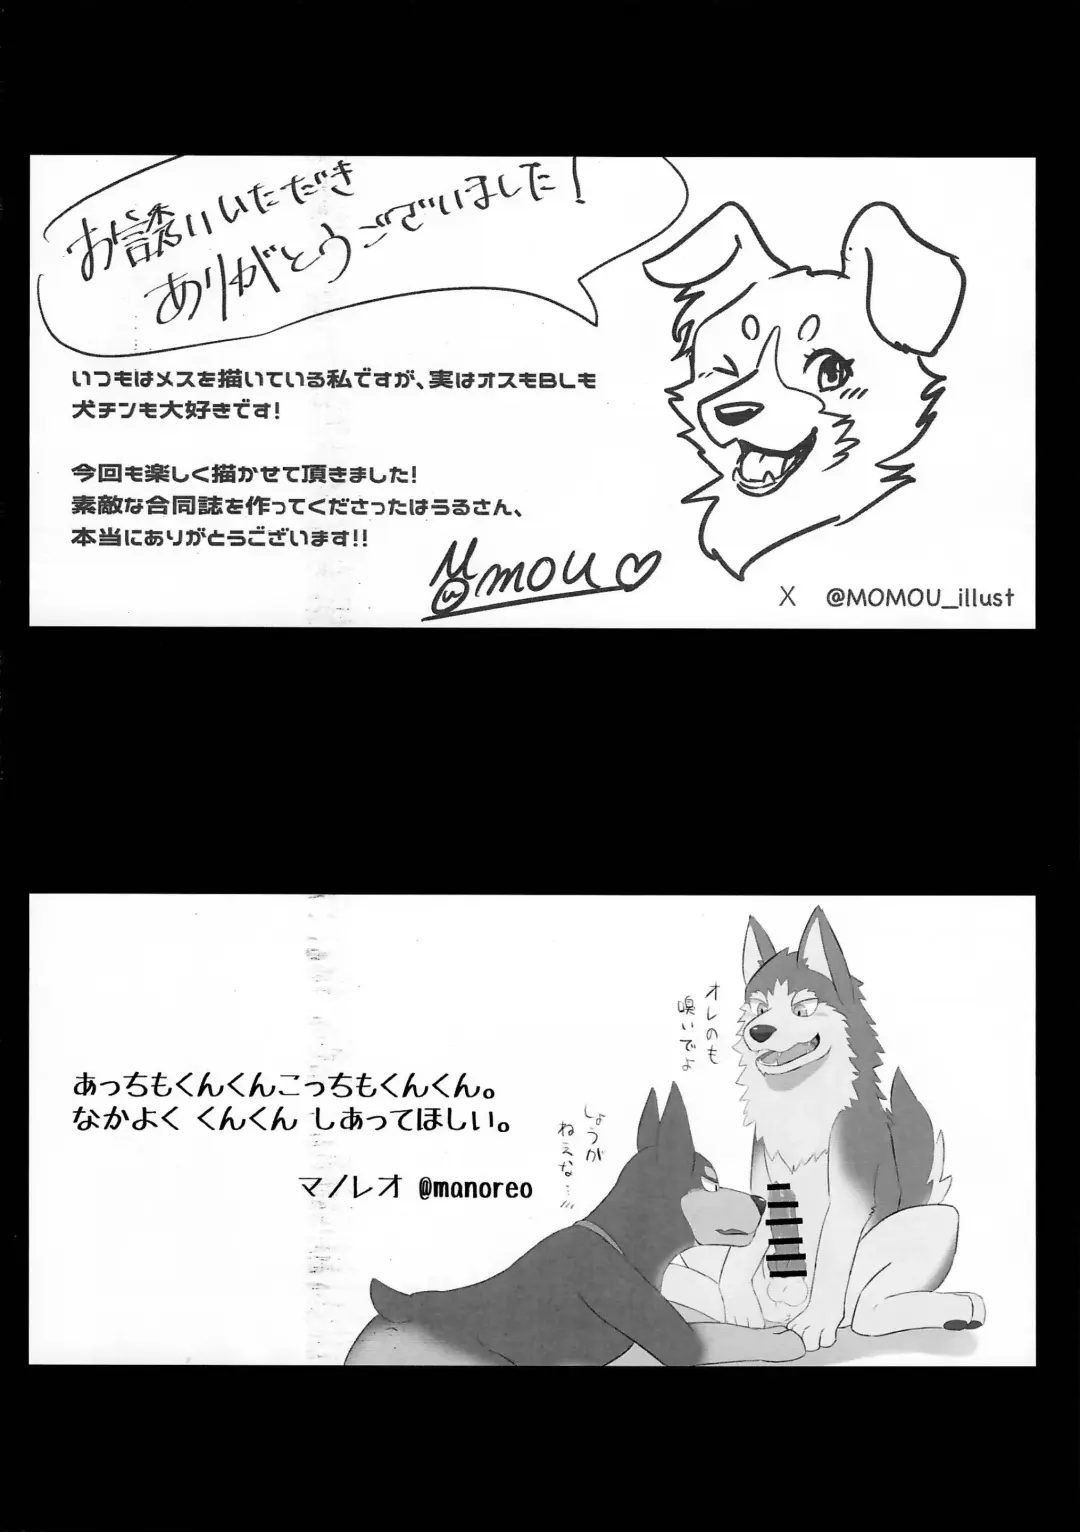 お誘いいただき
ありがとうございました!
いつもはメスを描いている私ですが、実はオスもBLも
犬チンも大好きです!
今回も楽しく描かせて頂きました!
素敵な合同誌を作ってくださったはうるさん、
本当にありがとうございます!!
Momou♡
X @MOMOU_illust
オレのも
嗅いでよ
しょうが
ねえな…
あっちもくんくんこっちもくんくん。
なかよく くんくん しあってほしい。
マノレオ @manoreo